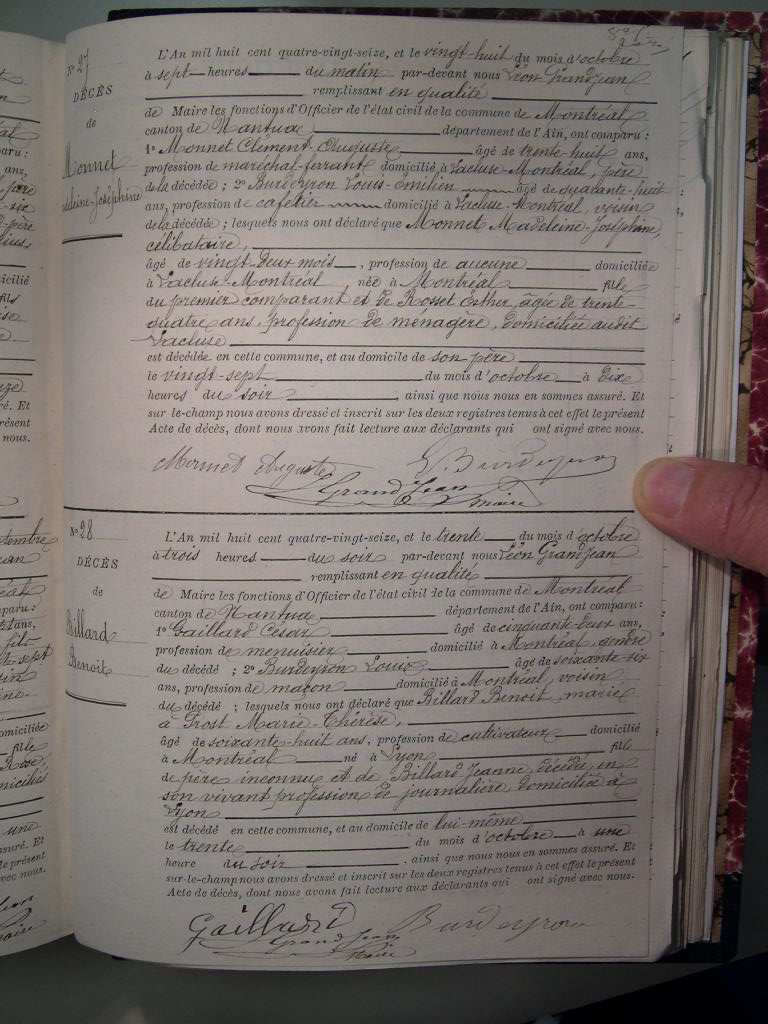 N° 27
DÉCÈS
de
Monnet
Madeleine-Joséphine
L'An mil huit cent quatre-vingt-seize, et le vingt-huit du mois d'octobre
à sept heures du matin par-devant nous Léon Grandjean
remplissant en qualité
de Maire les fonctions d'Officier de l'état civil de la commune de Montréal
canton de Nantua département de l'Ain, ont comparu :
1° Monnet Clément Auguste âgé de trente-huit ans,
profession de maréchal-ferrant domicilié à Lacluse-Montréal, père
de la décédée ; 2° Burdeyron Louis-Emilien âgé de quarante-huit
ans, profession de cafetier domicilié à Lacluse-Montréal, voisin
de la décédée ; lesquels nous ont déclaré que Monnet Madeleine-Joséphine,
célibataire,
âgé de vingt-deux mois , profession de aucune domiciliée
à Lacluse-Montréal , née à Montréal fille
du premier comparant et de Rosset Esther, âgée de trente-
quatre ans, profession de ménagère, domiciliée audit
Lacluse
est décédée en cette commune, et au domicile de son père
le vingt-sept du mois d'octobre à dix
heures du soir , ainsi que nous nous en sommes assuré. Et
sur le-champ nous avons dressé et inscrit sur les deux registres tenus à cet effet le présent
Acte de décès, dont nous avons fait lecture aux déclarants qui ont signé avec nous.
Monnet Auguste L. Burdeyron
Grandjean
maire
N° 28
DÉCÈS
de
Billard
Benoit
L'An mil huit cent quatre-vingt-seize, et le trente du mois d'octobre
à trois heures du soir par-devant nous Léon Grandjean
remplissant en qualité
de Maire les fonctions d'Officier de l'état civil de la commune de Montréal
canton de Nantua département de l'Ain, ont comparu :
1° Gaillard César âgé de cinquante-deux ans,
profession de menuisier domicilié à Montréal, gendre
du décédé ; 2° Burdeyron Louis âgé de soixante-six
ans, profession de maçon domicilié à Montréal, voisin
du décédé ; lesquels nous ont déclaré que Billard Benoit, marié
à Prost Marie-Thérèse,
âgé de soixante-huit ans, profession de cultivateur domicilié
à Montréal né à Lyon fils
de père inconnu et de Billard Jeanne décédée, en
son vivant profession de journalière, domiciliée à
Lyon
est décédé en cette commune, et au domicile de lui-même
le trente du mois d'octobre à une
heure du soir , ainsi que nous nous en sommes assuré. Et
sur-le-champ nous avons dressé et inscrit sur les deux registres tenus à cet effet le présent
Acte de décès, dont nous avons fait lecture aux déclarants qui ont signé avec nous.
Gaillard Burdeyron
Grandjean
Maire